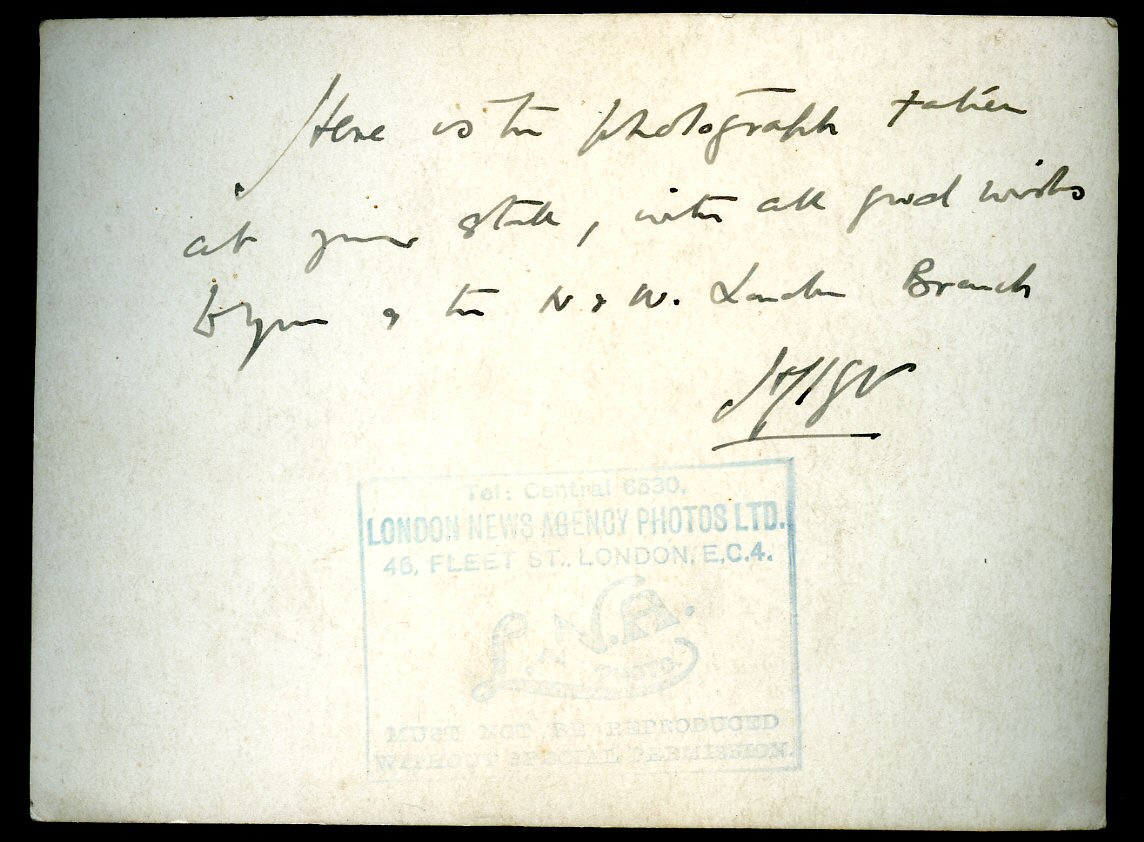 Here is the photograph taken
at your stall, with all good wishes
to you & the N & W. London Branch
Tel: Central 6530,
LONDON NEWS AGENCY PHOTOS LTD.
46, FLEET ST., LONDON, E.C.4.
L.N.A.
PHOTO.
MUST NOT BE REPRODUCED
WITHOUT SPECIAL PERMISSION.